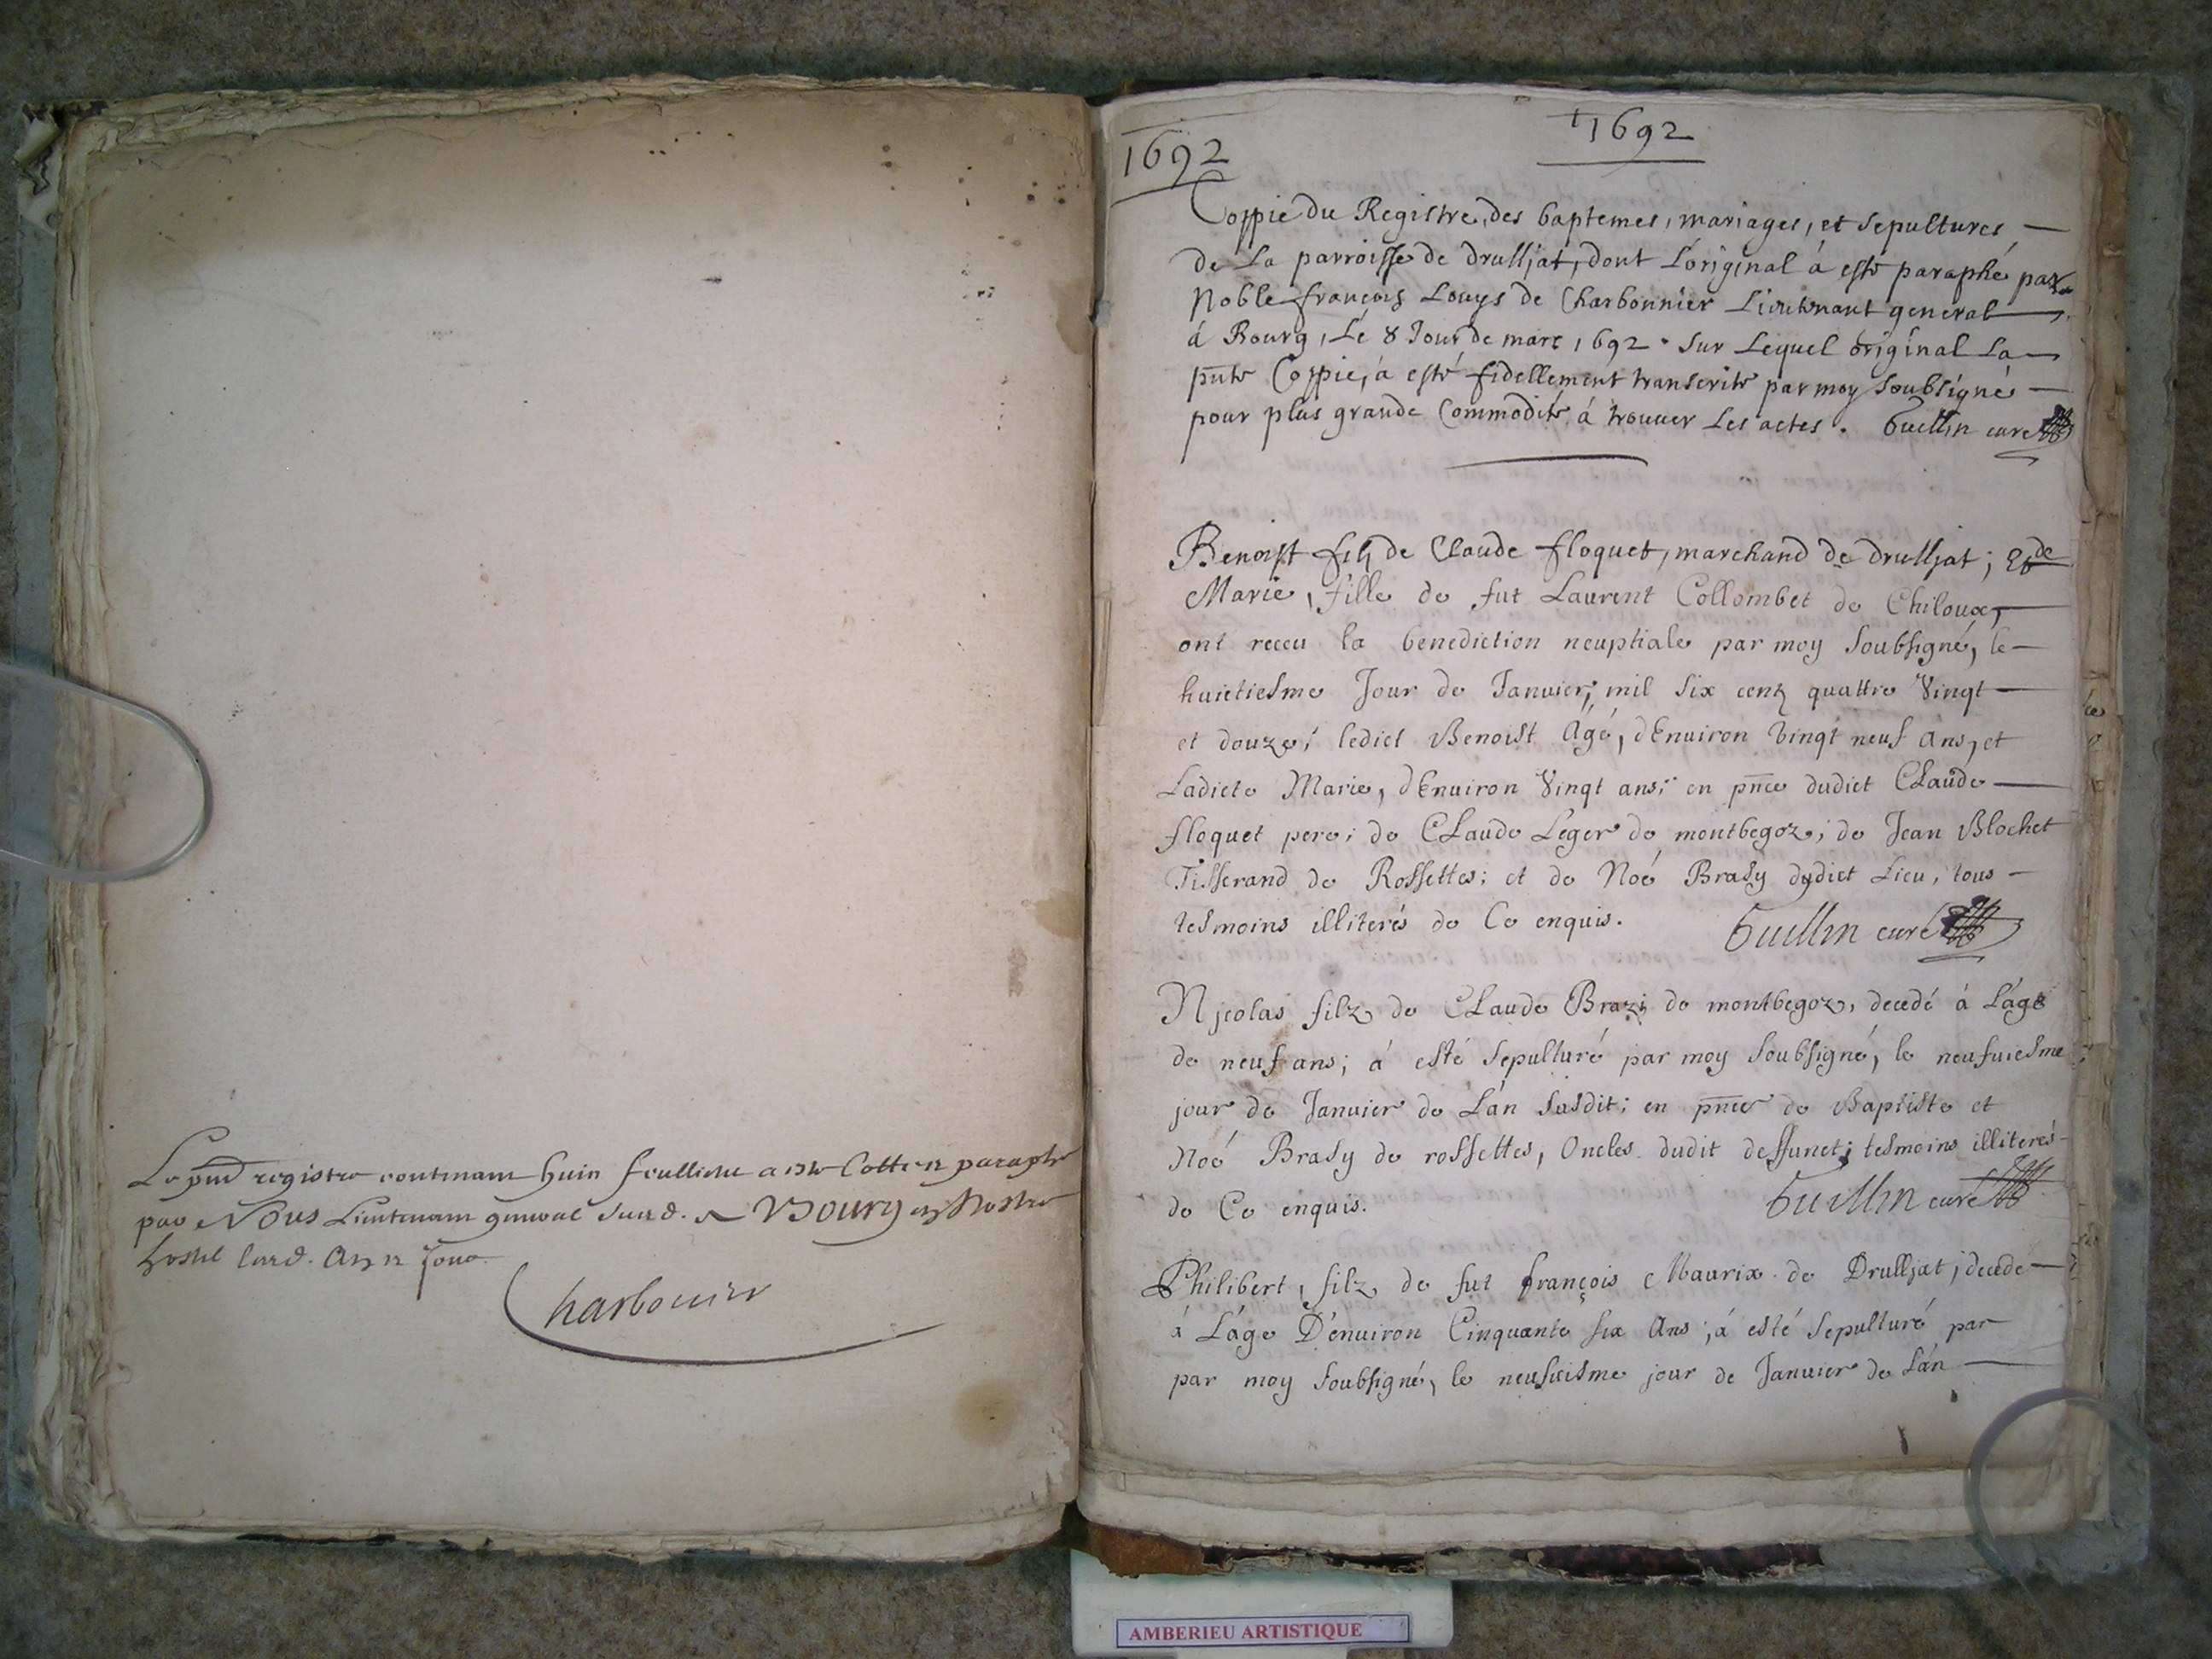 Le pnt registre contenant huict feullietz a este Cotté et paraphé
par Nous Lieutenant general susd. a Bourg en Nostre
hostel lesd. an et jour
Charbonier
1692
1692
Coppie du Registre, des baptemes, mariages, et sepultures
de La parroisse de drulljat, dont L'original à esté paraphé par
Noble françois Louys de Charbonnier Lieutenant general
à Bourg, Le 8 Jour de mars 1692. Sur Lequel original La
pnte Coppie, à esté fidellement transcrite par moy soubsigné
pour plus grande Commodité à trouver Les actes. Guillin curé
Benoist filz de Claude floquet, marchand de drulljat; Et de
Marie, fille de fut Laurent Collombet de Chiloux,
ont receu la benediction neuptiale par moy soubsigné, le
huictiesme Jour de Januier, mil six centz quattre Vingt
et douze; ledict Benoist Agé, d'Enuiron Vingt neuf Ans, et
Ladicte Marie, d'Enuiron Vingt ans; en pnce dudict CLaude
floquet pere; de CLaude Leger de montbegoz; de Jean Blochet
Tisserand de Rossettes; et de Noé Brasy dudict Lieu, tous
tesmoins illiterés de Ce enquis. Guillin curé
Njcolas filz de CLaude Brazi de montbegoz, decedé à L'áge
de neuf ans; à esté sepulturé par moy soubsigné, le neufuiesme
jour de Januier de L'an susdit; en pnce de Baptiste et
Noé Brasy de rossettes, Oncles dudit deffunct; tesmoins illiterés
de Ce enquis. Guillin curé
Philibert, filz de fut françois Maurix de Drulljat, decedé
à L'áge D'énuiron Cinquante six Ans, à esté sepulturé par
par moy soubsigné, le neufuiesme jour de Januier de L'án
AMBERIEU ARTISTIQUE